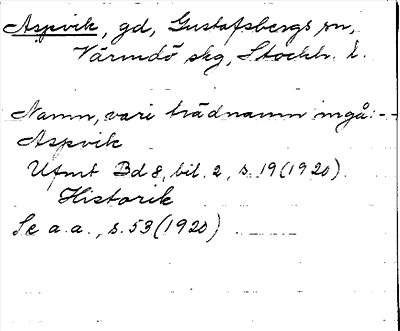 Aspvik, gd, Gustafsbergs sn,
Värmdö skg, Stockh. l.
Namn, vari trädnamn ingå:--
Aspvik
Ufmt Bd 8, bil. 2, s. 19 (1920).
Historik
Se a.a., s. 53 (1920)